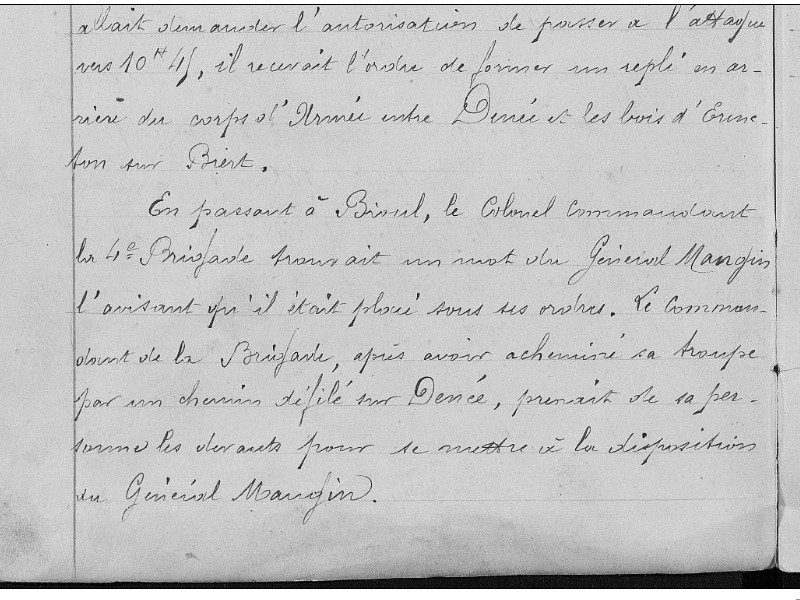 allait demander l'autorisation de passer à l'attaque
vers 10H 45, il recevait l'ordre de former un repli en ar-
rière du corps d'Armée entre Denée et les bois d'Erme-
ton sur Biert.
En passant à Bioul, le Colonel Commandant
la 4e Brigade trouvait un mot du Général Mangin
l'avisant qu'il était placé sous ses ordres. Le Comman-
dant de la Brigade, après avoir acheminé sa troupe
par un chemin défilé sur Denée, prenait de sa per-
sonne les devants pour se mettre à la disposition
du Général Mangin.